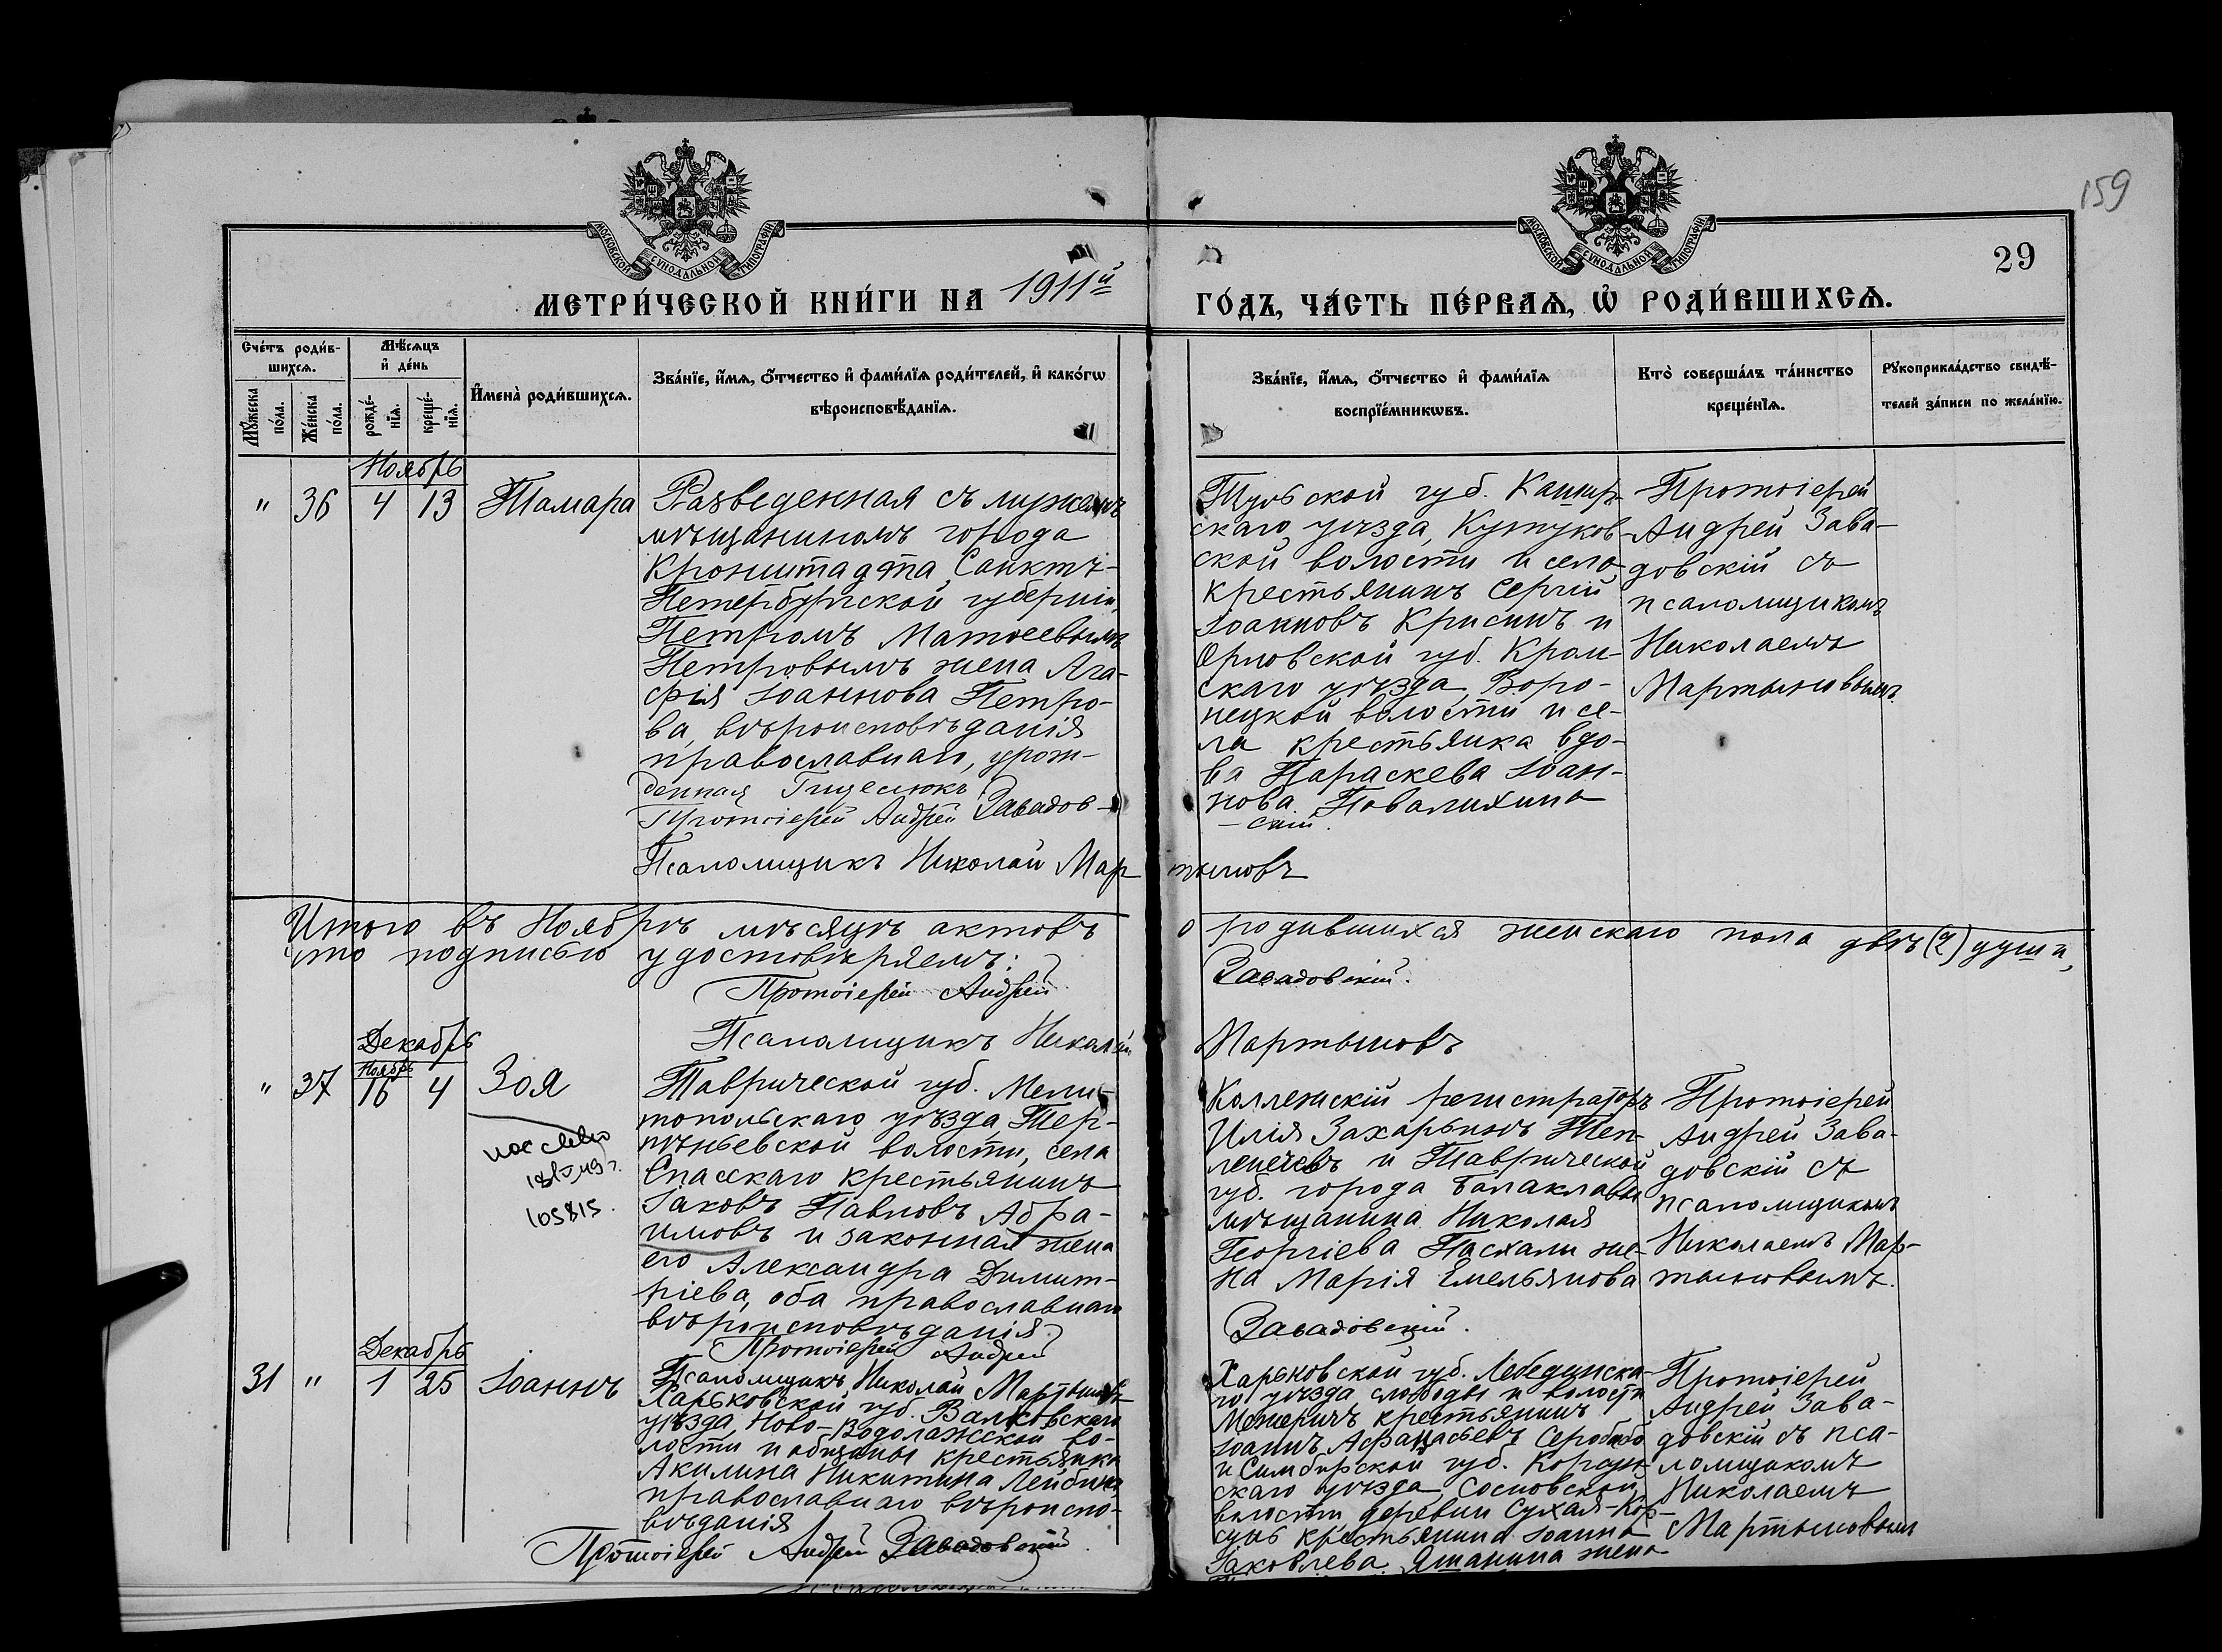 159
29
МОСКОВСКОЙ СѴНОДАЛЬНОЙ ТИПОГРАФІИ
МОСКОВСКОЙ СѴНОДАЛЬНОЙ ТИПОГРАФІИ
МЕТРИ́ЧЕСКОЙ КНИ́ГИ НА 1911й
ГО́ДЪ, ЧА́СТЬ ПЕ́РВАѦ, Ѡ҆ РОДИ́ВШИХСѦ.
Сче́тъ роди́в-
шихсѧ.
Мꙋ́жеска
по́ла.
Же́нска
по́ла.
Мѣ́сѧцъ
и҆ де́нь
рожде́-
нїѧ.
креще́-
нїѧ.
И҆мена̀ роди́вшихсѧ.
Зва́нїе, и҆́мѧ, ѻ҆́тчество и҆ фами́лїѧ роди́телей, и҆ како́гѡ
вѣроисповѣ́данїѧ.
Зва́нїе, и҆́мѧ, ѻ҆́тчество и҆ фами́лїѧ
воспрїе́мникѡвъ.
Кто̀ соверша́лъ та́инство
креще́нїѧ.
Рꙋкоприкла́дство свидѣ́-
телей за́писи по жела́нїю.
Ноябрь
" 36 4 13 Тамара
Разведенная съ мужемъ
мѣщаниномъ города
Кронштадта, Санктъ-
Петербургской губерніи,
Петромъ Матѳеевымъ
Петровымъ жена Ага-
фія Іоаннова Петро-
ва, вѣроисповѣданія
православнаго, урож-
денная
Протоіерей Андрей Завадов-
скій.
Псаломщикъ Николай Мар
тыновъ
Тульской губ. Кашир-
скаго уѣзда, Кутуков-
ской волости и села
крестьянинъ Сергій
Іоанновъ Крисинъ и
Орловской губ. Кром-
скаго уѣзда, Воро-
нецкой волости и се-
ла крестьянка вдо-
ва Параскева Іоан-
нова Повалихина
Протоіерей
Андрей Зава-
довскій съ
псаломщикомъ
Николаемъ
Мартыновымъ.
Итого въ Ноябрѣ мѣсяцѣ актовъ о родившихся женскаго пола двѣ (2) души,
что подписью удостовѣряемъ:
Протоіерей Андрей Завадовскій.
Псаломщикъ Николай Мартыновъ
Декабрь
Ноябрь
" 37 16 4 Зоя
105815.
Таврической губ. Мели-
топольскаго уѣзда, Тер-
пѣньевской волости, села
Спасскаго крестьянинъ
Іаковъ Павловъ Абра-
имовъ и законная жена
его Александра Димит-
ріева, оба православнаго
вѣроисповѣданія.
Протоіерей Андрей Завадовскій.
Псаломщикъ Николай Мартыновъ
Коллежскій регистраторъ
Илія Захарьинъ
и Таврической
губ. города Балаклавы
мѣщанина Николая
Георгіева Пасхали же-
на Марія Емельянова
Протоіерей
Андрей Зава-
довскій съ
псаломщикомъ
Николаемъ Мар-
тыновымъ.
Декабрь
31 " 1 25 Іоаннъ
Харьковской губ. Валковскаго
уѣзда, Ново-Водолажской во-
лости и общины крестьянка
Акилина Никитина
православнаго вѣроиспо-
вѣданія
Протоіерей Андрей Завадовскій.
Харьковской губ. Лебединска-
го уѣзда слободы и волости
Межеричъ крестьянинъ
Іоаннъ Афанасьевъ
и Симбирской губ. Корсун-
скаго уѣзда, Сосновской
волости, деревни Сухая-Кор-
сунь крестьянина Іоанна
Іаковлева Яшанина жена
Протоіерей
Андрей Зава-
довскій съ пса-
ломщикомъ
Николаемъ
Мартыновымъ